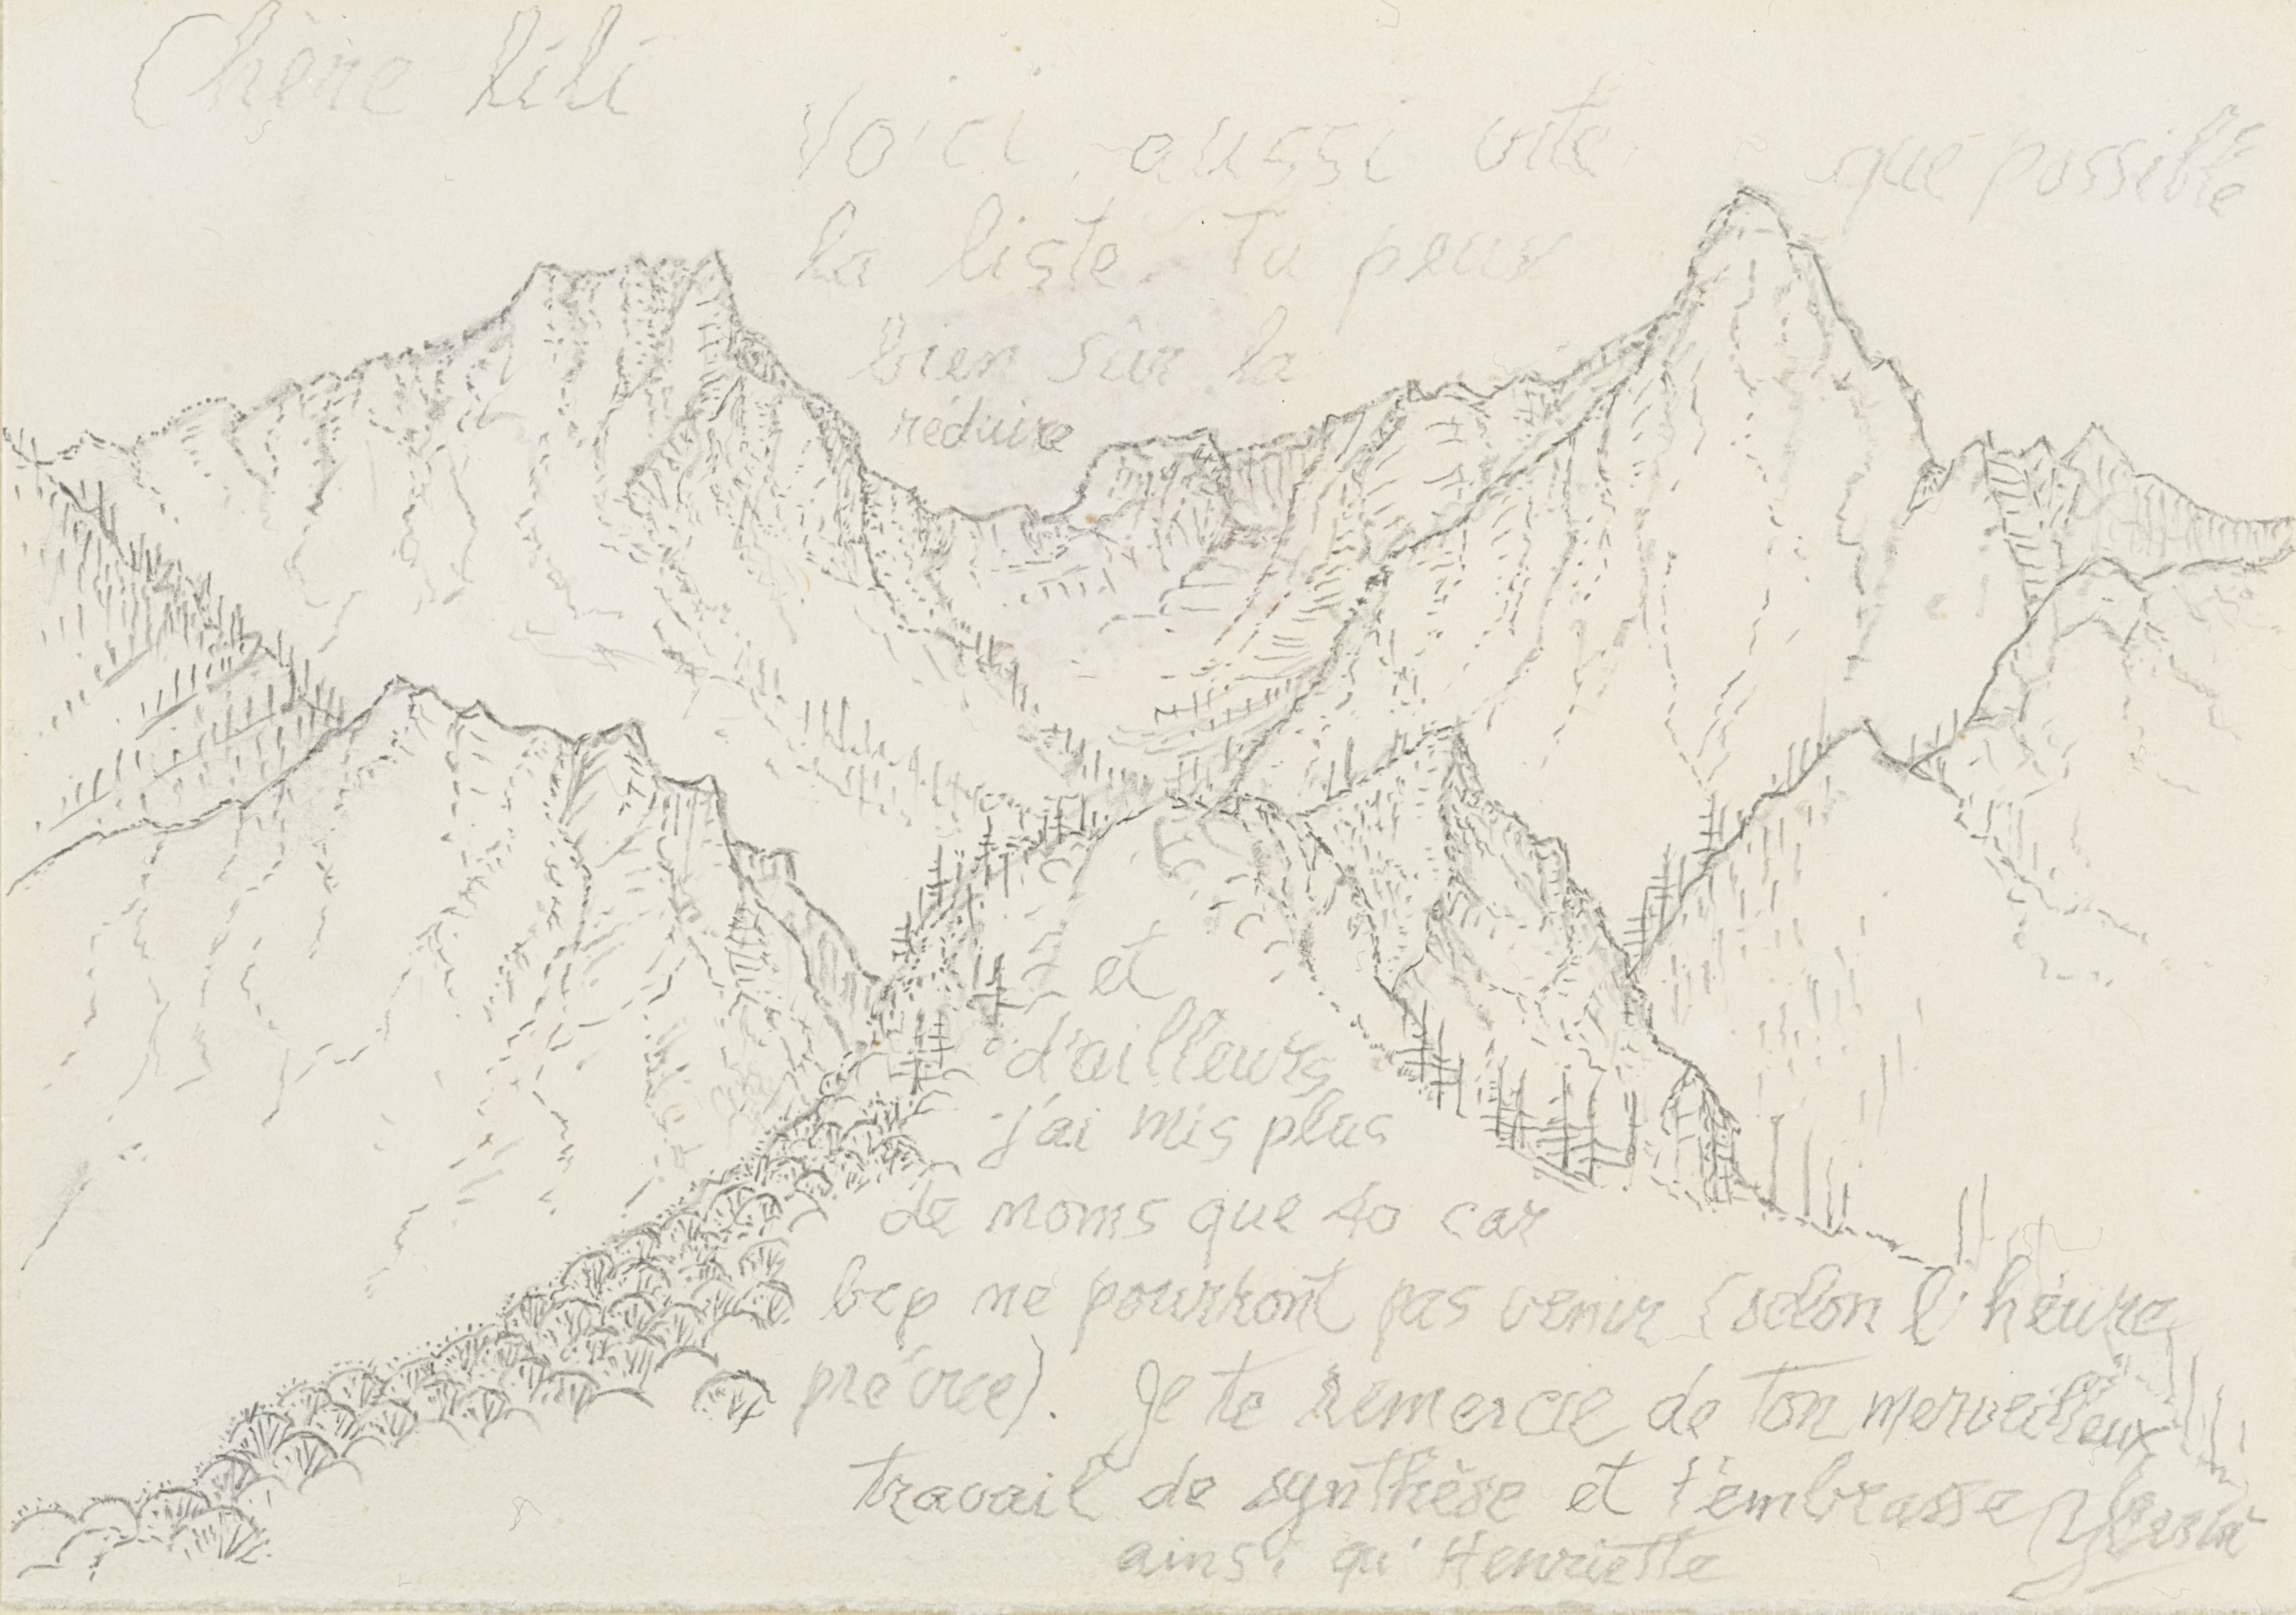 Chère Lili
Voici, aussi vite que possible
la liste. Tu peux
bien sûr la
réduire
et
d'ailleurs
j'ai mis plus
de noms que 40 car
bcp ne pourront pas venir (selon l'heure
prévue). Je te remercie de ton merveilleux
travail de synthèse et t'embrasse
ainsi qu'Henriette